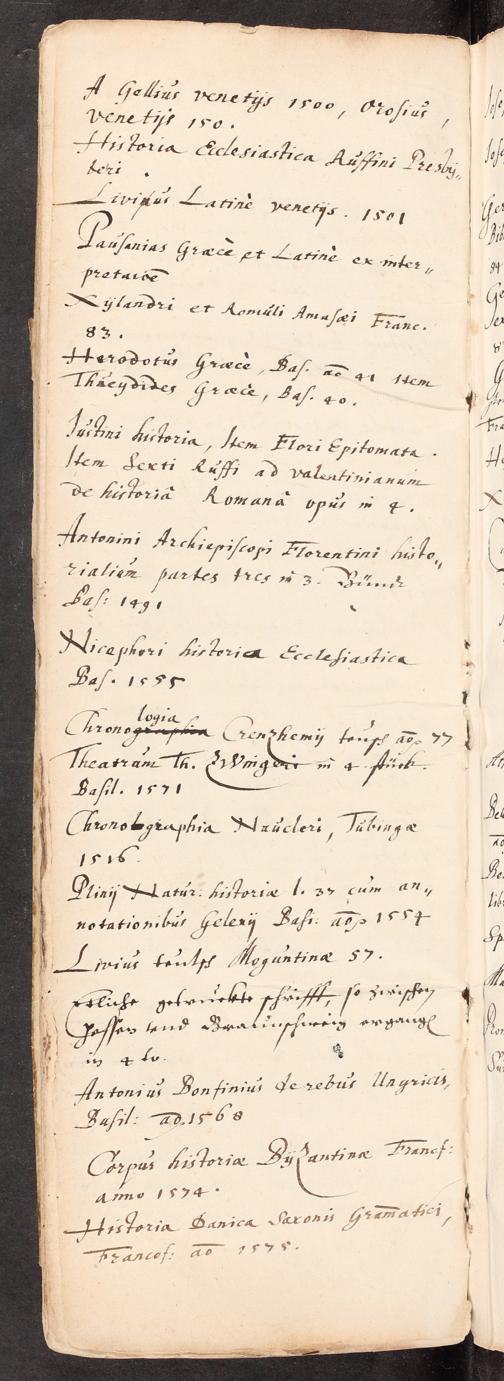 A Gellius venetijs 1500, Orosius,
venetijs 150.
Historia Ecclesiastica Ruffini Presby„
teri.
Livius Latinè venetijs. 1501
Pausanias Græcè et Latinè ex inter„
pretatiōe
Xylandri et Romuli Amasæi Franc.
83.
Herodotus Græcè, Bas. aō 41 Item
Thucydides Græcè, Bas. 40.
Justini historia, Item Flori Epitomata.
Item Sexti Ruffi ad valentinianum
de historiâ Romanâ opus in 4.
Antonini Archiepiscopi Florentini histo„
rialium partes tres in 3. Bündt
Bas: 1491
Nicephori historica Ecclesiastica
Bas. 1555
logia
Chronographia teutsch aō 77
Theatrum Th. Zwingeri in 4 stück.
Basil. 1571
Chronolographia Naucleri, Tubingæ
1516.
Plinij Natur: historiæ l. 37 cum an„
notationibus Gelenij Bas: aō 1554
Livius teutsch Moguntinæ 57.
etliche getruckte schrifft, so zwischen
Hessen vnd Braunschweig ergangē
in 4to.
Antonius Bonfinius de rebus Ungricis,
Basil: aō 1568
Corpus historiæ Byzantinæ Francf:
anno 1574.
Historia Danica Saxonis Gram̄atici,
Francof: aō 1575.